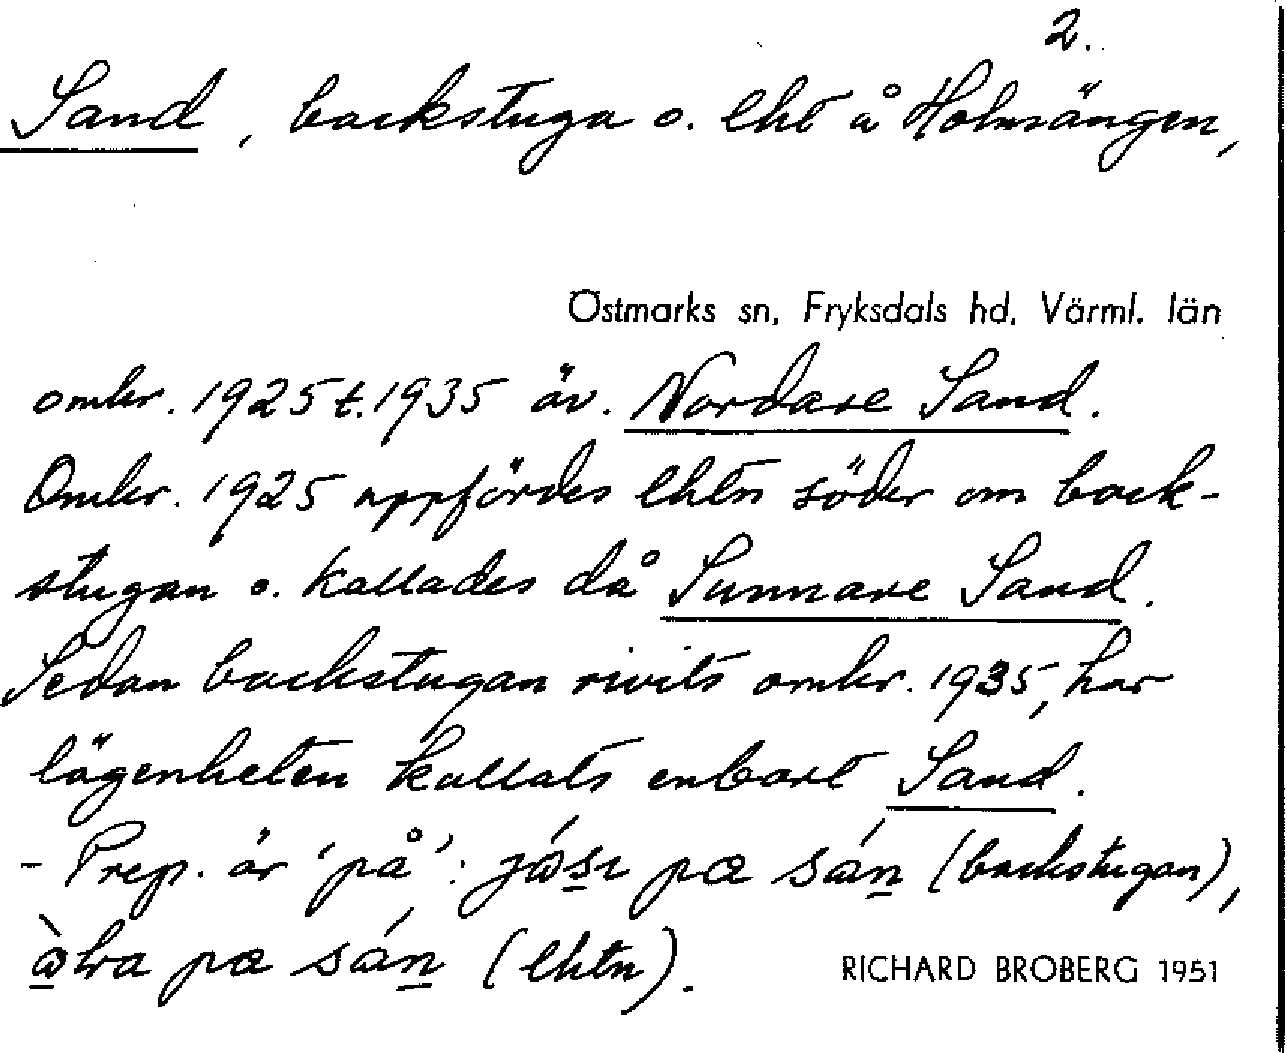 2.
Sand, backstuga o. lht å Holmsängen,
Östmarks sn, Fryksdals hd, Värml. län
omkr. 1925 t. 1935 äv. Nordare Sand.
Omkr. 1925 uppfördes lhtn söder om back-
stugan o. kallades då Sunnare Sand.
Sedan backstugan rivits omkr. 1935, har
lägenheten kallats enbart Sand.
- Prep. är 'på': pœ sán (backstugan),
pœ sán (lhtn).
RICHARD BROBERG 1951